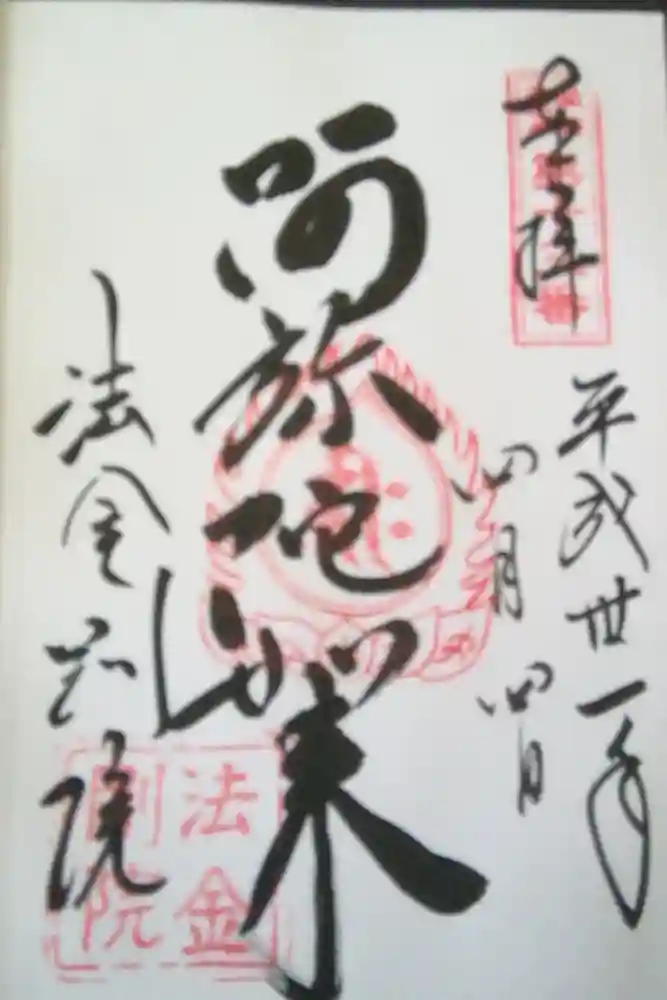 奉拝
平成卅一年
四月四日
阿弥陀如来
法金剛院
法金
剛院